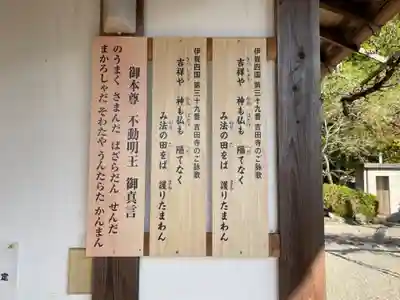 伊賀四国 第三十九番 吉田寺のご詠歌
吉祥や 神も仏も 隔てなく
み法の田をば 護りたまわん
伊賀四国 第三十九番 吉田寺のご詠歌
吉祥や 神も仏も 隔てなく
み法の田をば 護りたまわん
御本尊 不動明王 御真言
のうまく さまんだ ばざらだん せんだ
まかろしゃだ そわたや うんたらた かんまん
定